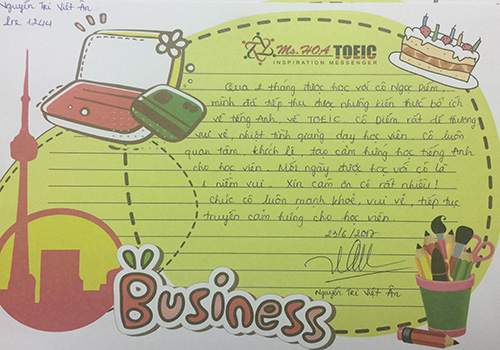 Nguyễn Trí Việt Ân
Lre 1244
Ms. HOA TOEIC
INSPIRATION MESSENGER
Qua 2 tháng được học với cô Ngọc Diễm,
mình đã tiếp thu được những kiến thức bổ ích
về tiếng Anh, về TOEIC. Cô Diễm rất dễ thương
vui vẻ, nhiệt tình giảng dạy học viên. Cô luôn
quan tâm, khích lệ, tạo cảm hứng học tiếng Anh
cho học viên. Mỗi ngày được học với cô là
1 niềm vui. Xin cảm ơn cô rất nhiều!
Chúc cô luôn mạnh khoẻ, vui vẻ, tiếp tục
truyền cảm hứng cho học viên.
23/6/2017
Nguyễn Trí Việt Ân
Business